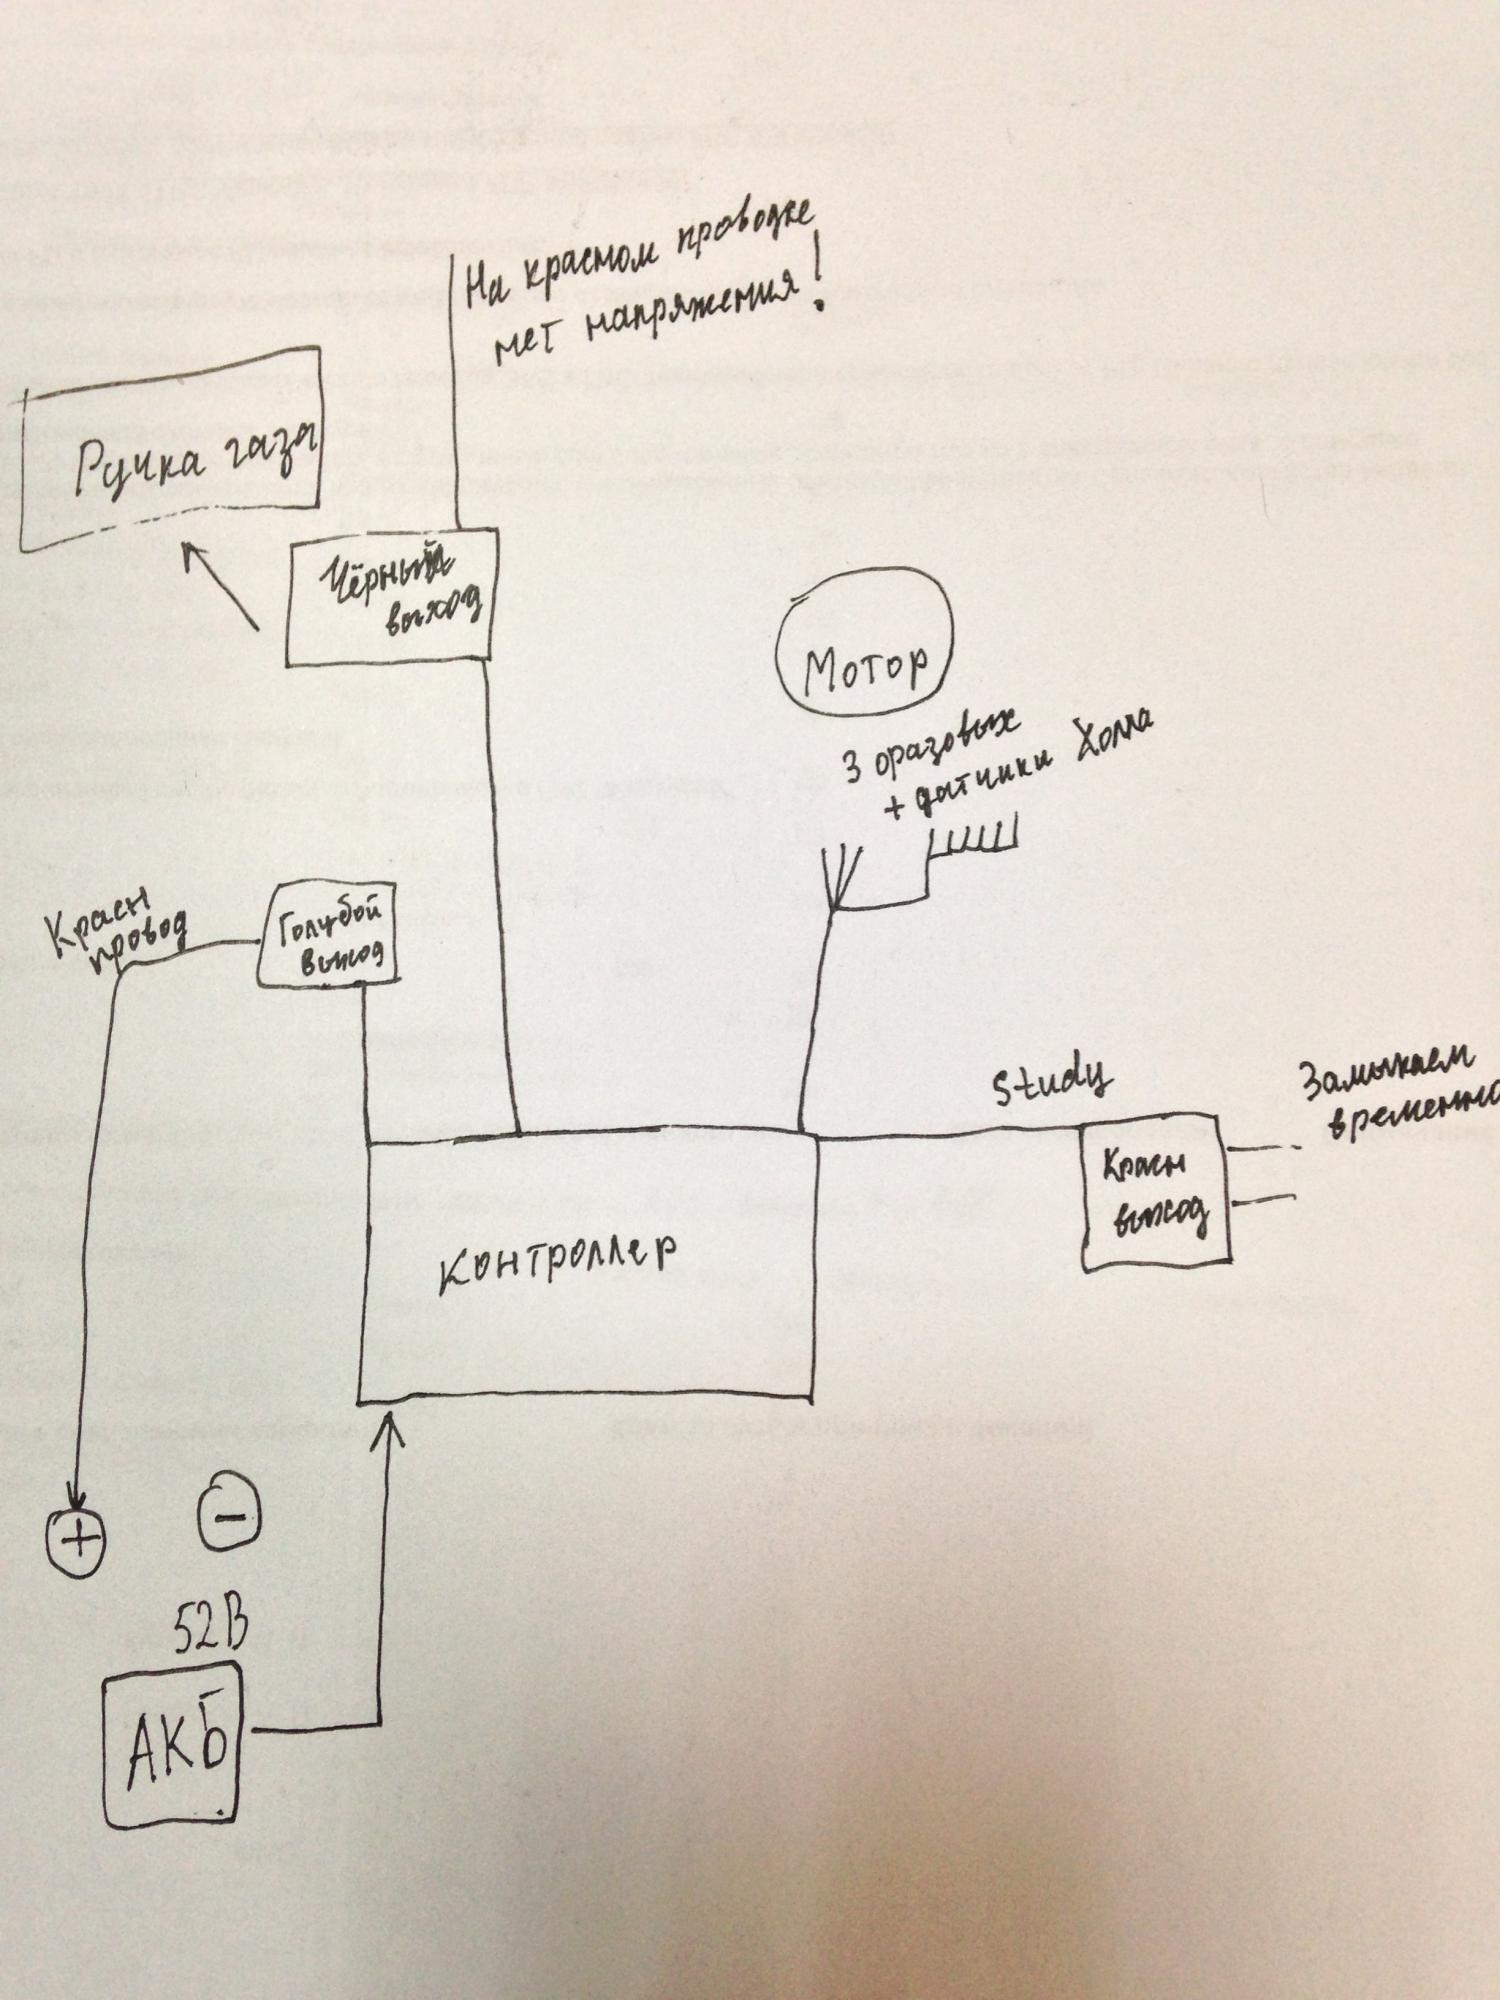 На красном проводке
нет напряжения!
Ручка газа
Чёрный
выход
Мотор
3 фазовых
+ датчики Холла
Красн
провод
Голубой
выход
Study
Замыкаем
временно
Красн
выход
Контроллер
+
−
52В
АКБ